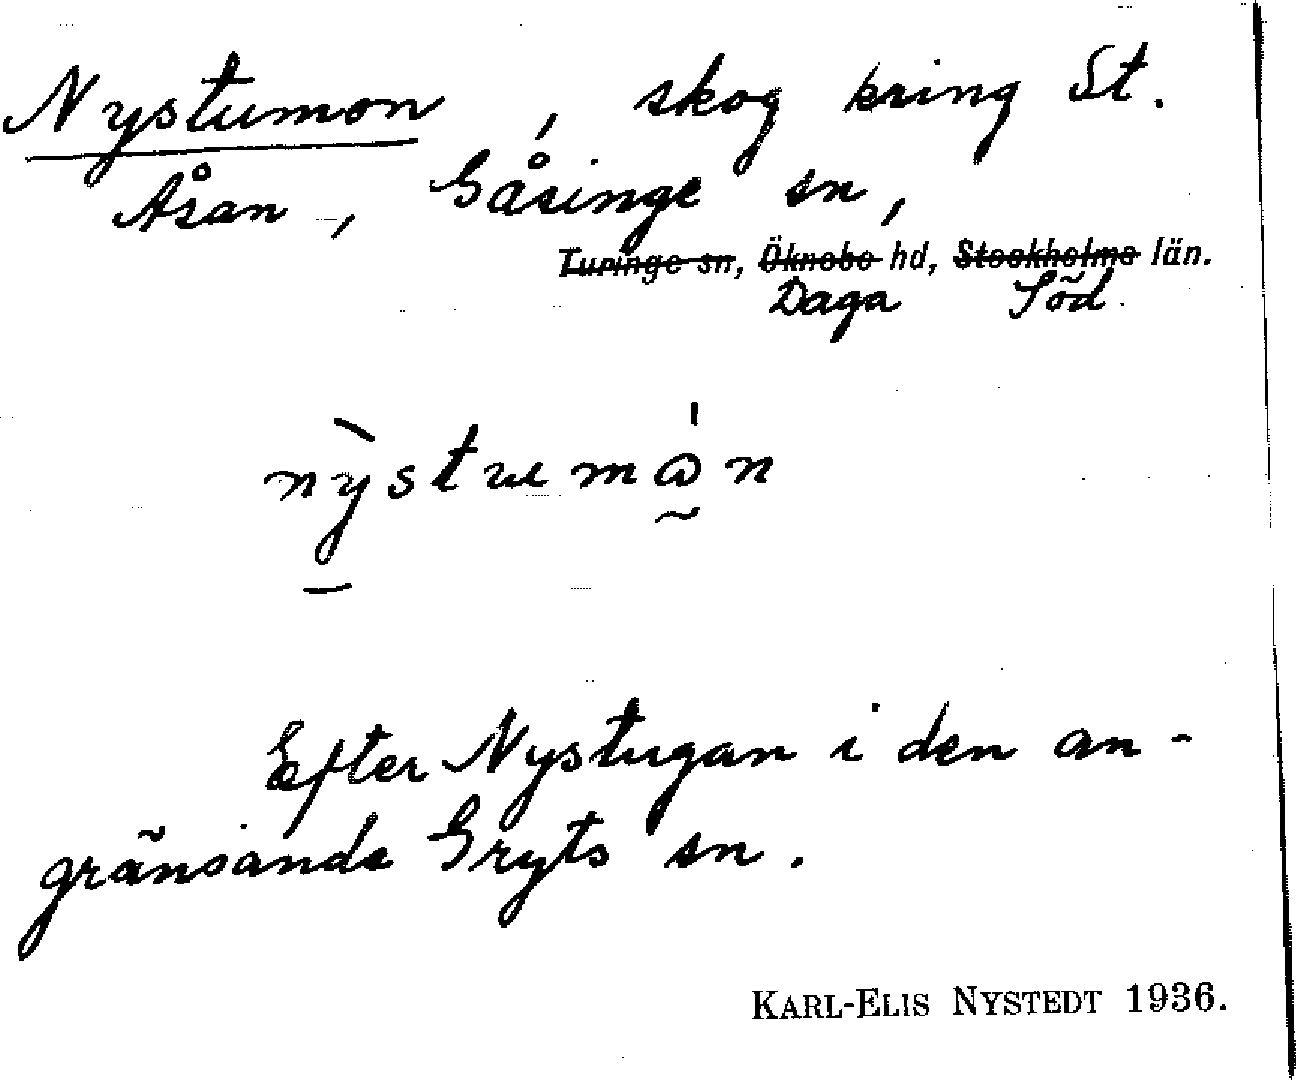 Nystumon, skog kring St.
Åsan, Gåsinge sn,
Turinge sn, Öknebo hd, Stockholms län.
Daga Söd.
Efter Nystugan i den an-
gränsande Gryts sn.
KARL-ELIS NYSTEDT 1936.